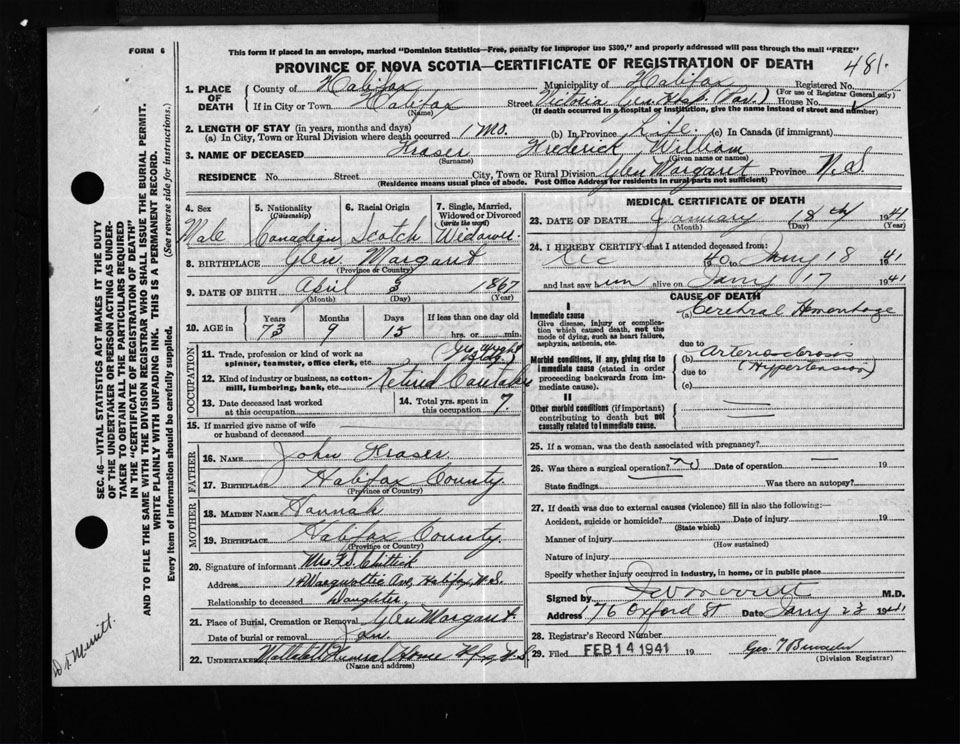 FORM 6
This form if placed in an envelope, marked "Dominion Statistics—Free, penalty for improper use $300," and properly addressed will pass through the mail "FREE"
PROVINCE OF NOVA SCOTIA—CERTIFICATE OF REGISTRATION OF DEATH
481.
1. PLACE OF DEATH
County of Halifax Municipality of Halifax Registered No.
(For use of Registrar General only)
If in City or Town Halifax Street Victoria Gen. Hosp. (Pav.) House No.
(Name) (If death occurred in a hospital or institution, give the name instead of street and number)
2. LENGTH OF STAY (in years, months and days)
(a) In City, Town or Rural Division where death occurred 1 Mo. (b) In Province Life (c) In Canada (if immigrant)
3. NAME OF DECEASED Fraser Frederick William
(Surname) (Given name or names)
RESIDENCE No. Street City, Town or Rural Division Glen Margaret Province N.S.
(Residence means usual place of abode. Post Office Address for residents in rural parts not sufficient)
4. Sex Male
5. Nationality (Citizenship) Canadian
6. Racial Origin Scotch
7. Single, Married, Widowed or Divorced (write the word) Widower
8. BIRTHPLACE Glen Margaret
(Province or Country)
9. DATE OF BIRTH April 3 1867
(Month) (Day) (Year)
10. AGE in Years Months Days If less than one day old
73 9 15 hrs. or min.
OCCUPATION
11. Trade, profession or kind of work as spinner, teamster, office clerk, etc.
12. Kind of industry or business, as cotton-mill, lumbering, bank, etc. Retired Caretaker
13. Date deceased last worked at this occupation
14. Total yrs. spent in this occupation 7.
15. If married give name of wife or husband of deceased
FATHER
16. NAME John Fraser
17. BIRTHPLACE Halifax County
(Province or Country)
MOTHER
18. MAIDEN NAME Hannah
19. BIRTHPLACE Halifax County
(Province or Country)
20. Signature of informant Mrs. F.S. Chittick
Address Halifax, N.S.
Relationship to deceased Daughter
21. Place of Burial, Cremation or Removal Glen Margaret
Date of burial or removal Jan.
22. UNDERTAKER Funeral Home Hfx N.S.
(Name and address)
MEDICAL CERTIFICATE OF DEATH
23. DATE OF DEATH January 18th 1941
(Month) (Day) (Year)
24. I HEREBY CERTIFY that I attended deceased from:
Dec 40 to Jany 18 1941
and last saw him alive on Jany 17 1941
CAUSE OF DEATH
I
Immediate cause
Give disease, injury or complication which caused death, not the mode of dying, such as heart failure, asphyxia, asthenia, etc.
(a) Cerebral Hemorrhage
due to
Morbid conditions, if any, giving rise to immediate cause (stated in order proceeding backwards from immediate cause).
(b) Arteriosclerosis
due to (Hypertension)
(c)
II
Other morbid conditions (if important) contributing to death but not causally related to immediate cause.
25. If a woman, was the death associated with pregnancy?
26. Was there a surgical operation? Date of operation 19
State findings Was there an autopsy?
27. If death was due to external causes (violence) fill in also the following:—
Accident, suicide or homicide? Date of injury 19
(State which)
Manner of injury
(How sustained)
Nature of injury
Specify whether injury occurred in industry, in home, or in public place
Signed by M.D.
Address 76 Oxford St Date Jany 23 1941
28. Registrar's Record Number
29. Filed FEB 14 1941 19
(Division Registrar)
SEC. 46—VITAL STATISTICS ACT MAKES IT THE DUTY OF THE UNDERTAKER OR PERSON ACTING AS UNDERTAKER TO OBTAIN ALL THE PARTICULARS REQUIRED IN THE "CERTIFICATE OF REGISTRATION OF DEATH" AND TO FILE THE SAME WITH THE DIVISION REGISTRAR WHO SHALL ISSUE THE BURIAL PERMIT.
WRITE PLAINLY WITH UNFADING INK. THIS IS A PERMANENT RECORD.
Every item of information should be carefully supplied. (See reverse side for instructions.)
Dr. Merritt.